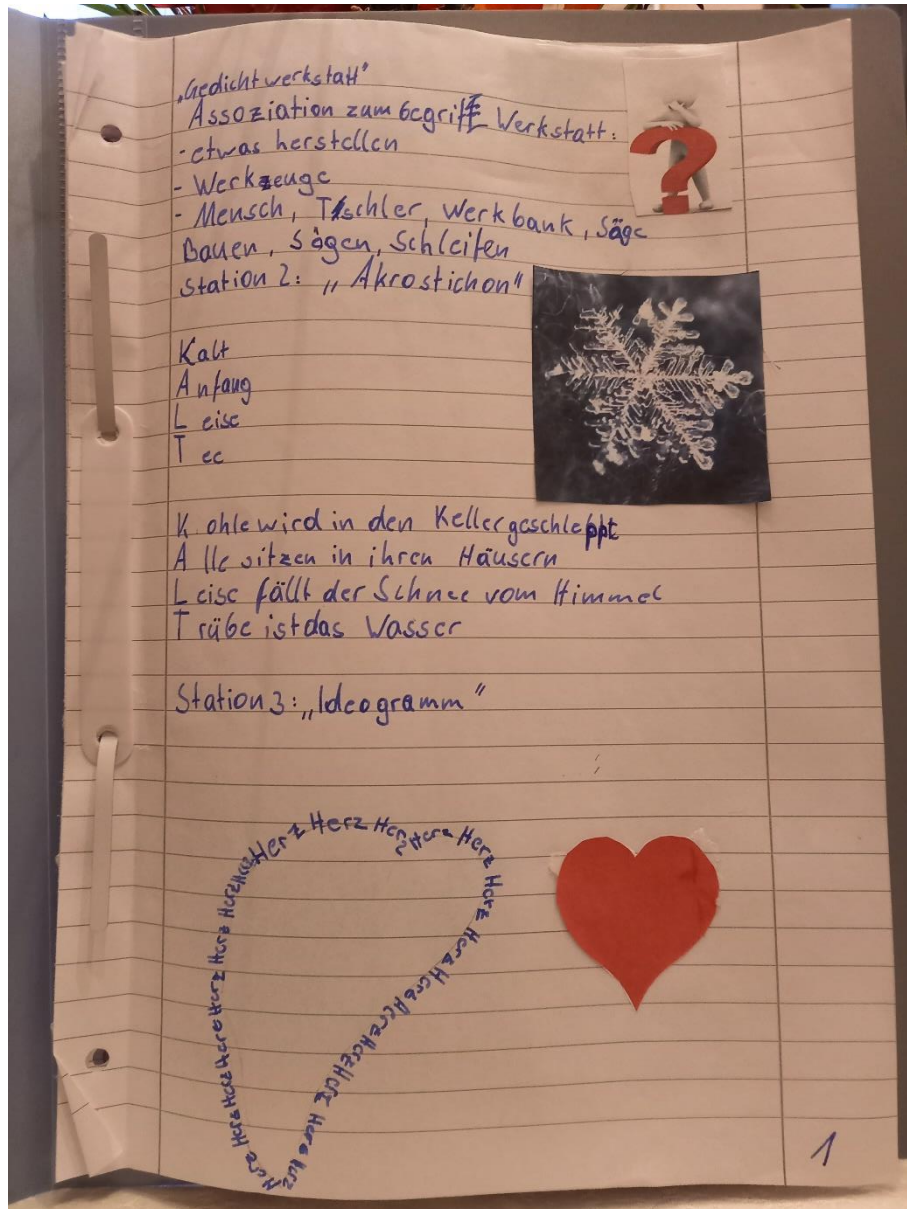 „Gedichtwerkstatt"
Assoziation zum Begriff Werkstatt:
- etwas herstellen
- Werkzeuge
- Mensch, Tischler, Werkbank, Säge
Bauen, Sägen, Schleifen
Station 2: „Akrostichon"
Kalt
Anfang
Leise
Tee
Kohle wird in den Keller geschleppt
Alle sitzen in ihren Häusern
Leise fällt der Schnee vom Himmel
Trübe ist das Wasser
Station 3: „Ideogramm"
Herz Herz Herz Herz Herz Herz Herz Herz Herz Herz Herz Herz Herz Herz Herz Herz Herz Herz Herz Herz Herz Herz
?
1